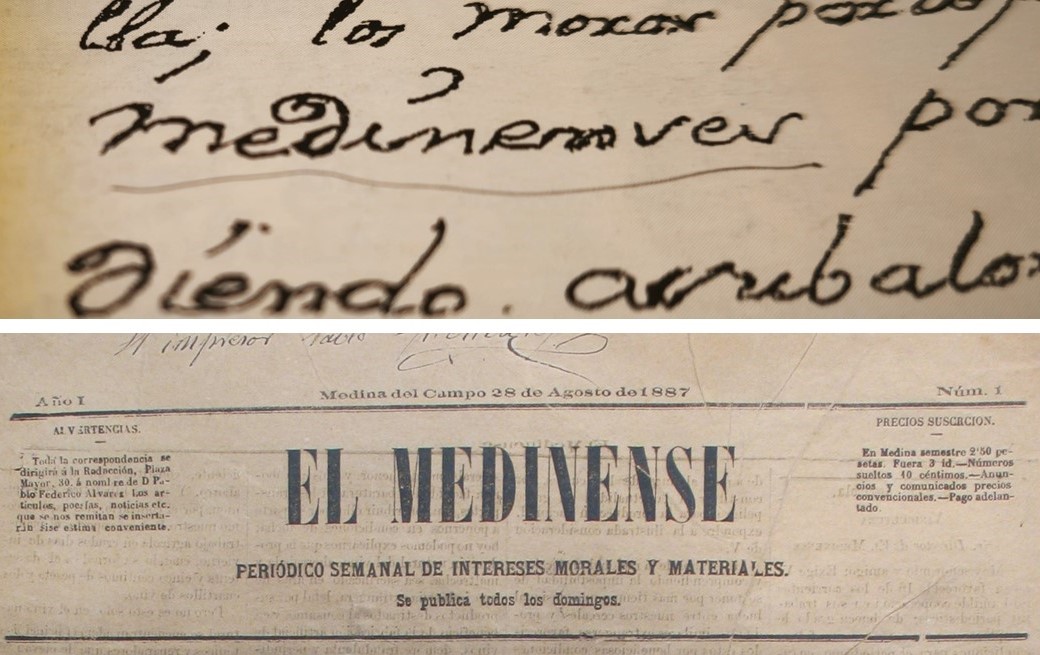 lla; los moros por
medínenses por
diendo. arrabalo
A impresor Pablo
Año I
Medina del Campo 28 de Agosto de 1887
Núm. 1
ADVERTENCIAS.
Toda la correspondencia se
dirigirá á la Redacción, Plaza
Mayor, 30. á nombre de D Pa-
blo Federico Alvarez Los ar-
tículos, poesías, noticias etc.
que se nos remitan se inserta-
rán si se estima conveniente.
EL MEDINENSE
PERIÓDICO SEMANAL DE INTERESES MORALES Y MATERIALES.
Se publica todos los domingos.
PRECIOS SUSCRCION.
En Medina semestre 2'50 pe-
setas. Fuera 3 id.—Números
sueltos 10 céntimos.—Anun-
cios y comunicados precios
convencionales.—Pago adelan-
tado.